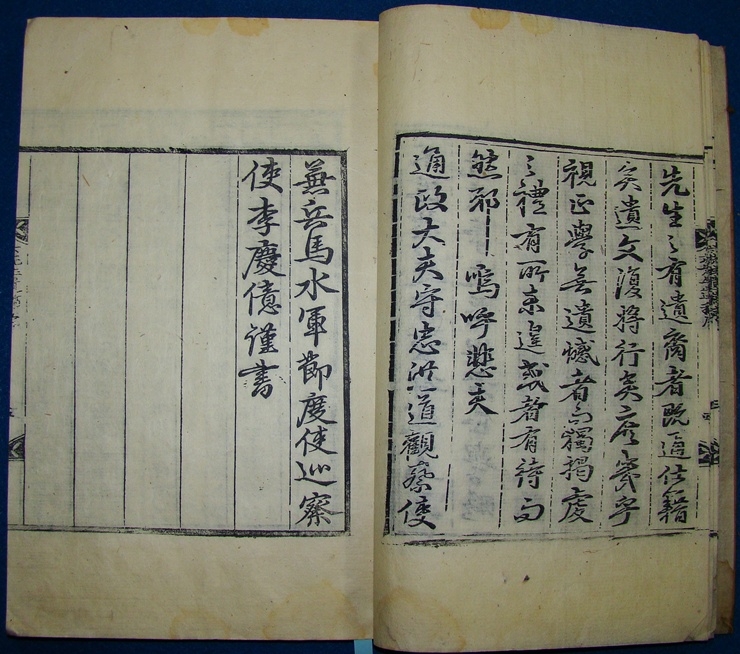 先生之有遺裔者既通仕籍
矣遺文復將行矣庶幾乎
視正學無遺憾者而獨褐處
之禮有所未遑或者有待而
然邪嗚呼悲夫
通政大夫守忠洪道觀察使
兼兵馬水軍節度使巡察
使李慶億謹書